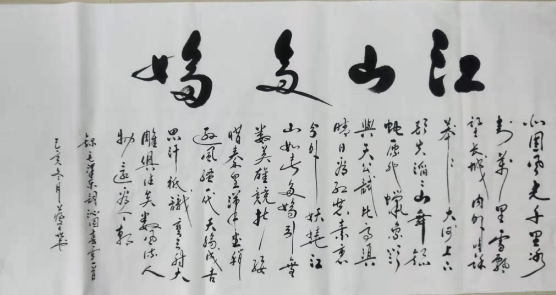 江山多娇
北国风光千里冰
封万里雪飘
望长城内外惟馀
莽莽大河上下
顿失滔滔山舞银
蛇原驰蜡象欲
与天公试比高须
晴日看红装素裹
分外妖娆江
山如此多娇引无
数英雄竞折腰
惜秦皇
逊风骚一代天骄成吉
思汗只识弯弓射大
雕俱往矣数风流人
物还看今朝
录毛泽东词沁园春雪一首
己亥冬月